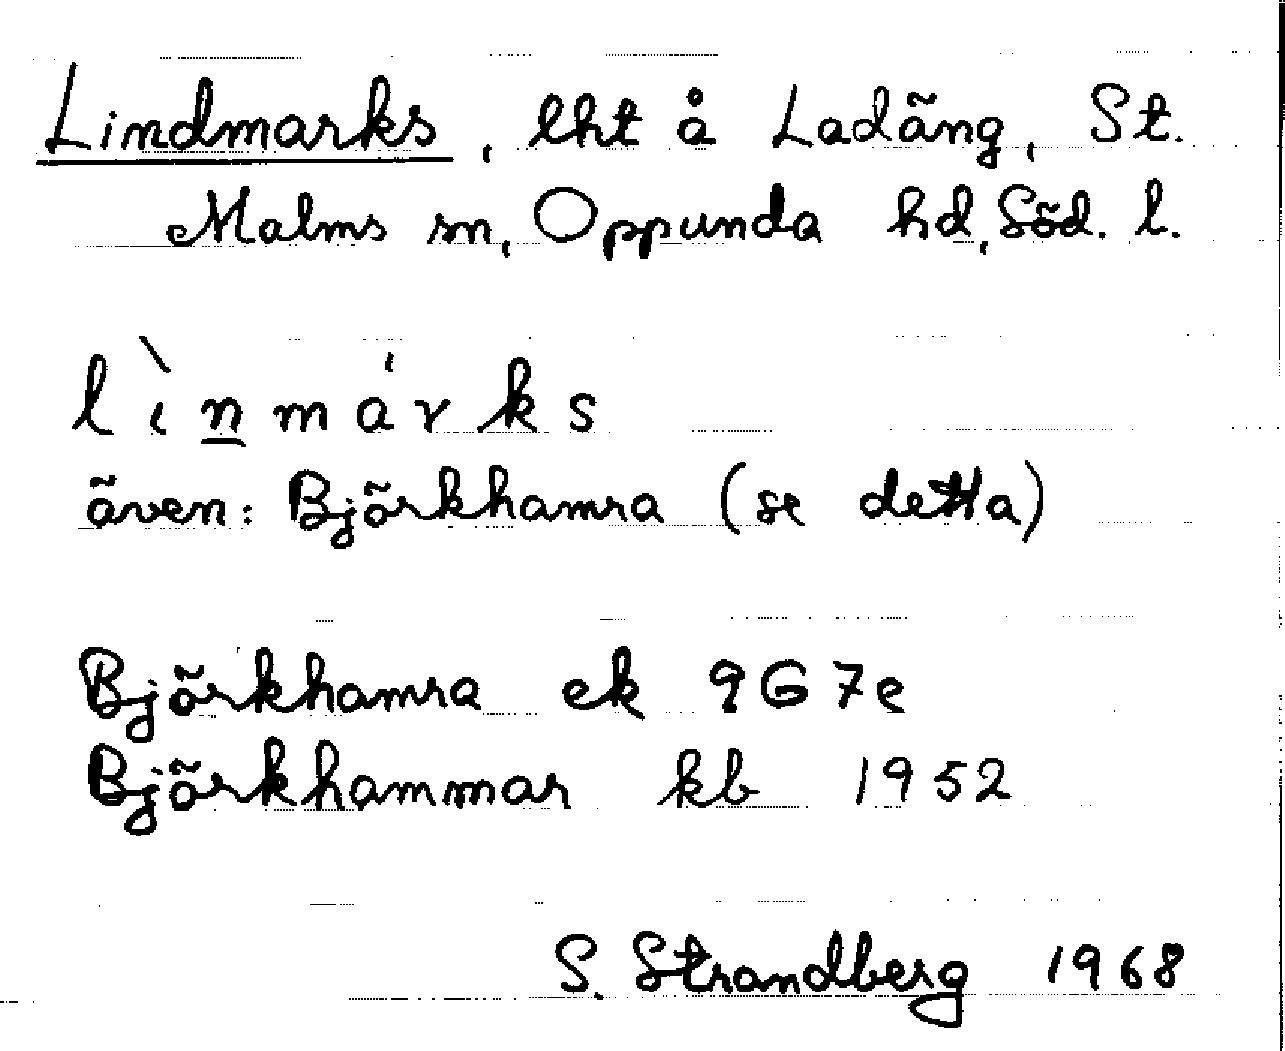 Lindmarks, lht å Ladäng, St.
Malms sn, Oppunda hd, Söd. l.
lìnmárks
även: Björkhamra (se detta)
Björkhamra ek 9G 7e
Björkhammar kb 1952
S. Strandberg 1968